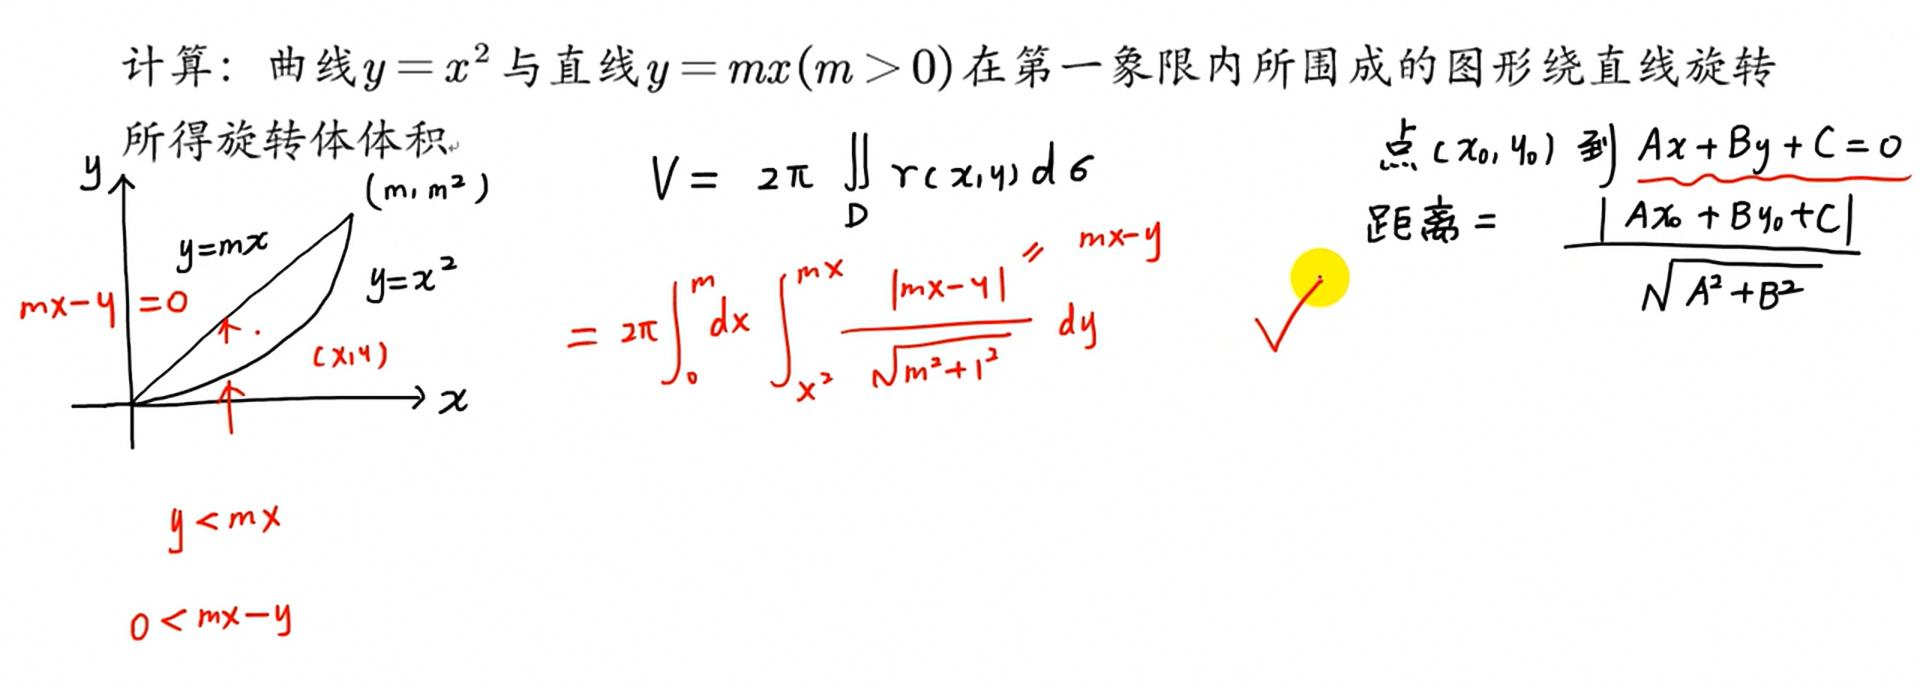 计算：曲线y=x²与直线y=mx(m>0)在第一象限内所围成的图形绕直线旋转
所得旋转体体积
y
(m, m²)
y=mx
y=x²
mx-y=0
(x,y)
x
y<mx
0<mx-y
V = 2π ∬_D r(x,y)dσ
= 2π ∫_0^m dx ∫_{x²}^{mx} |mx-y| / √(m²+1²) dy
= mx-y
点(x₀, y₀) 到 Ax+By+C=0
距离 = |Ax₀+By₀+C| / √(A²+B²)